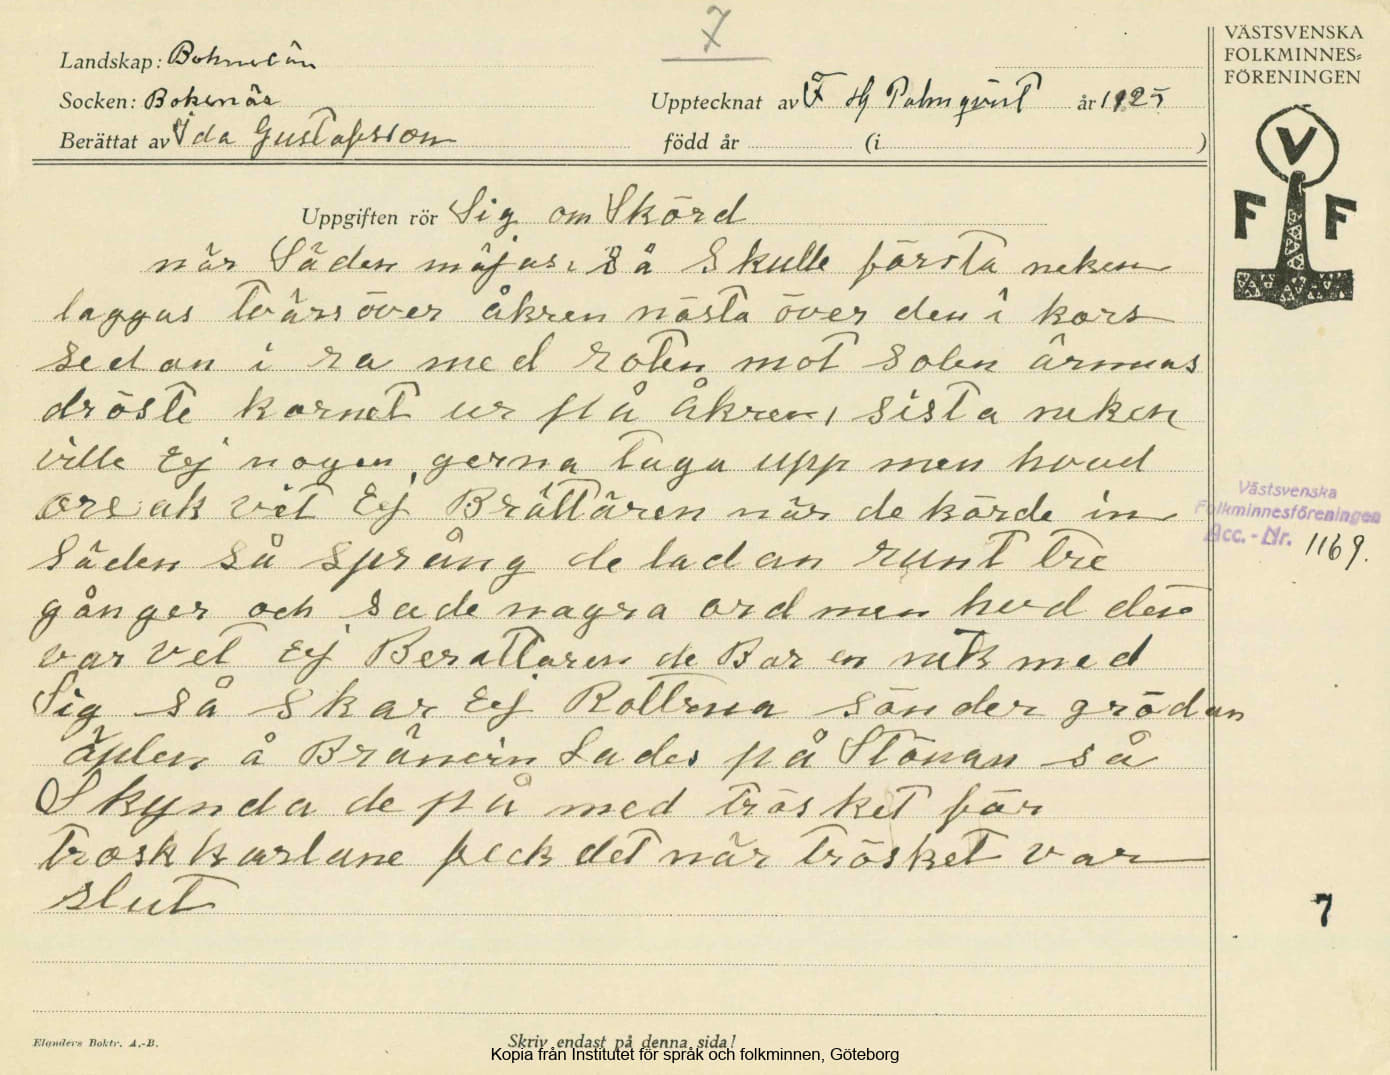 7
VÄSTSVENSKA
FOLKMINNES-
FÖRENINGEN
Landskap: Bohuslän
Socken: Bokenäs
Upptecknat av F Hj Palmqvist år 1925
Berättat av Ida Gustafsson
född år (i )
V
F F
Uppgiften rör Sig om Skörd
när Säden mäjas, så skulle första neken
laggas tvärsöver åkren nästa över den i kors
sedan i ra med roten mot solen ärmuas
dröste kornet ur på åkren, sista neken
ville Ej nogen gerna taga upp men hvad
orsak vet Ej Brättären när de körde in
Säden så sprang de ladan runt tre
gånger och sade nagra ord men hvd det
var vet Ej Berattaren de Bar en nek med
Sig så skar Ej Rottrna sönder grödan
äplen å Bränvin Lades på Stöuan så
Skynda de på med trösket för
troskkarlane feck det när trösket var
slut
Västsvenska
Folkminnesföreningen
Acc.-Nr. 1169.
7
Elanders Boktr. A.-B.
Skriv endast på denna sida!
Kopia från Institutet för språk och folkminnen, Göteborg